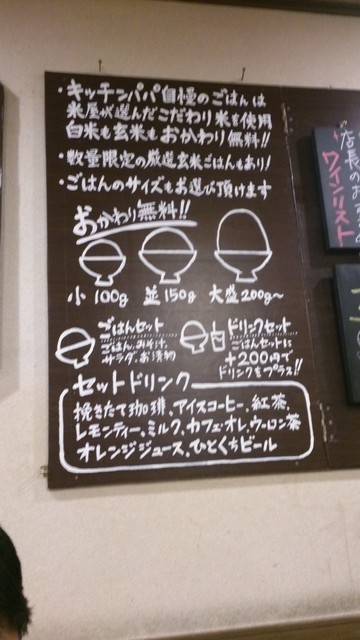 ・キッチンパパ自慢のごはんは
米屋が選んだこだわり米を使用
白米も玄米もおかわり無料!!
・数量限定の厳選玄米ごはんもあり!
・ごはんのサイズもお選び頂けます
おかわり無料!!
小 100g 並 150g 大盛 200g〜
ごはんセット
ごはん、おみそ汁、
サラダ、お漬物
ドリンクセット
ごはんセットに
+200円で
ドリンクをプラス!!
セットドリンク
挽きたて珈琲、アイスコーヒー、紅茶、
レモンティー、ミルク、カフェオレ、ウーロン茶
オレンジジュース、ひとくちビール
店長の
ワインリスト